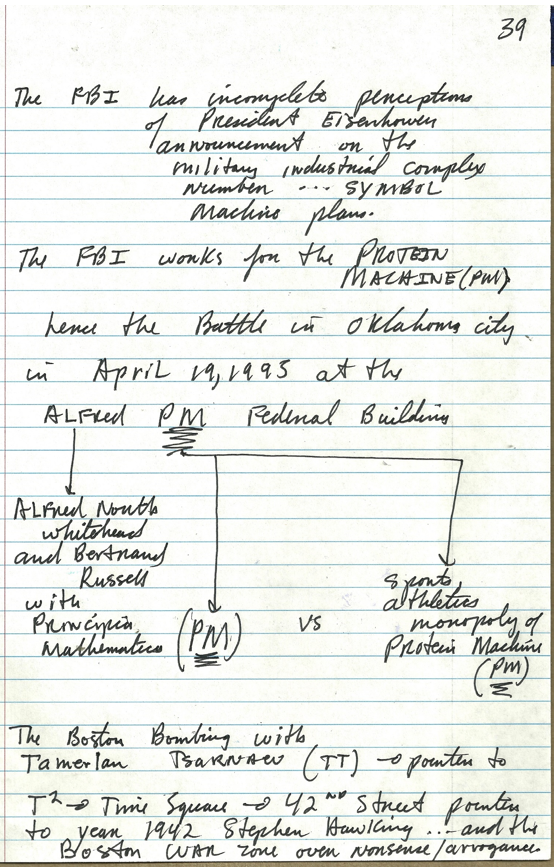 39
The FBI has incomplete perceptions
of President Eisenhower
announcement on the
military industrial complex
number ... SYMBOL
Machine plans.
The FBI works for the PROTEIN
MACHINE (PM)
hence the Battle in Oklahoma city
in April 19, 1995 at the
ALFRED PM Federal Building
ALFred North
whitehead
and Bertrand
Russell
with
Principia
Mathematica (PM)
vs
sports,
athletics
monopoly of
Protein Machine
(PM)
The Boston Bombing with
Tamerlan TSARNAEV (TT) → pointer to
T² → Time Square → 42nd Street pointer
to year 1942 Stephen Hawking ... and the
Boston WAR zone over nonsense/arrogance